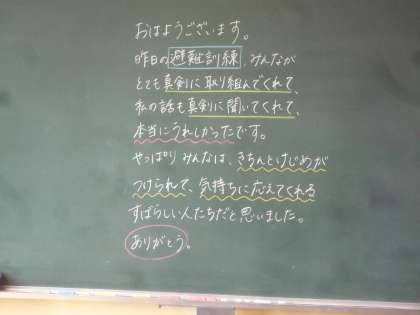 おはようございます。
昨日の避難訓練、みんなが
とても真剣に取り組んでくれて、
私の話も真剣に聞いてくれて、
本当にうれしかったです。
やっぱりみんなは、きちんとけじめが
つけられて、気持ちに応えてくれる
すばらしい人たちだと思いました。
ありがとう。